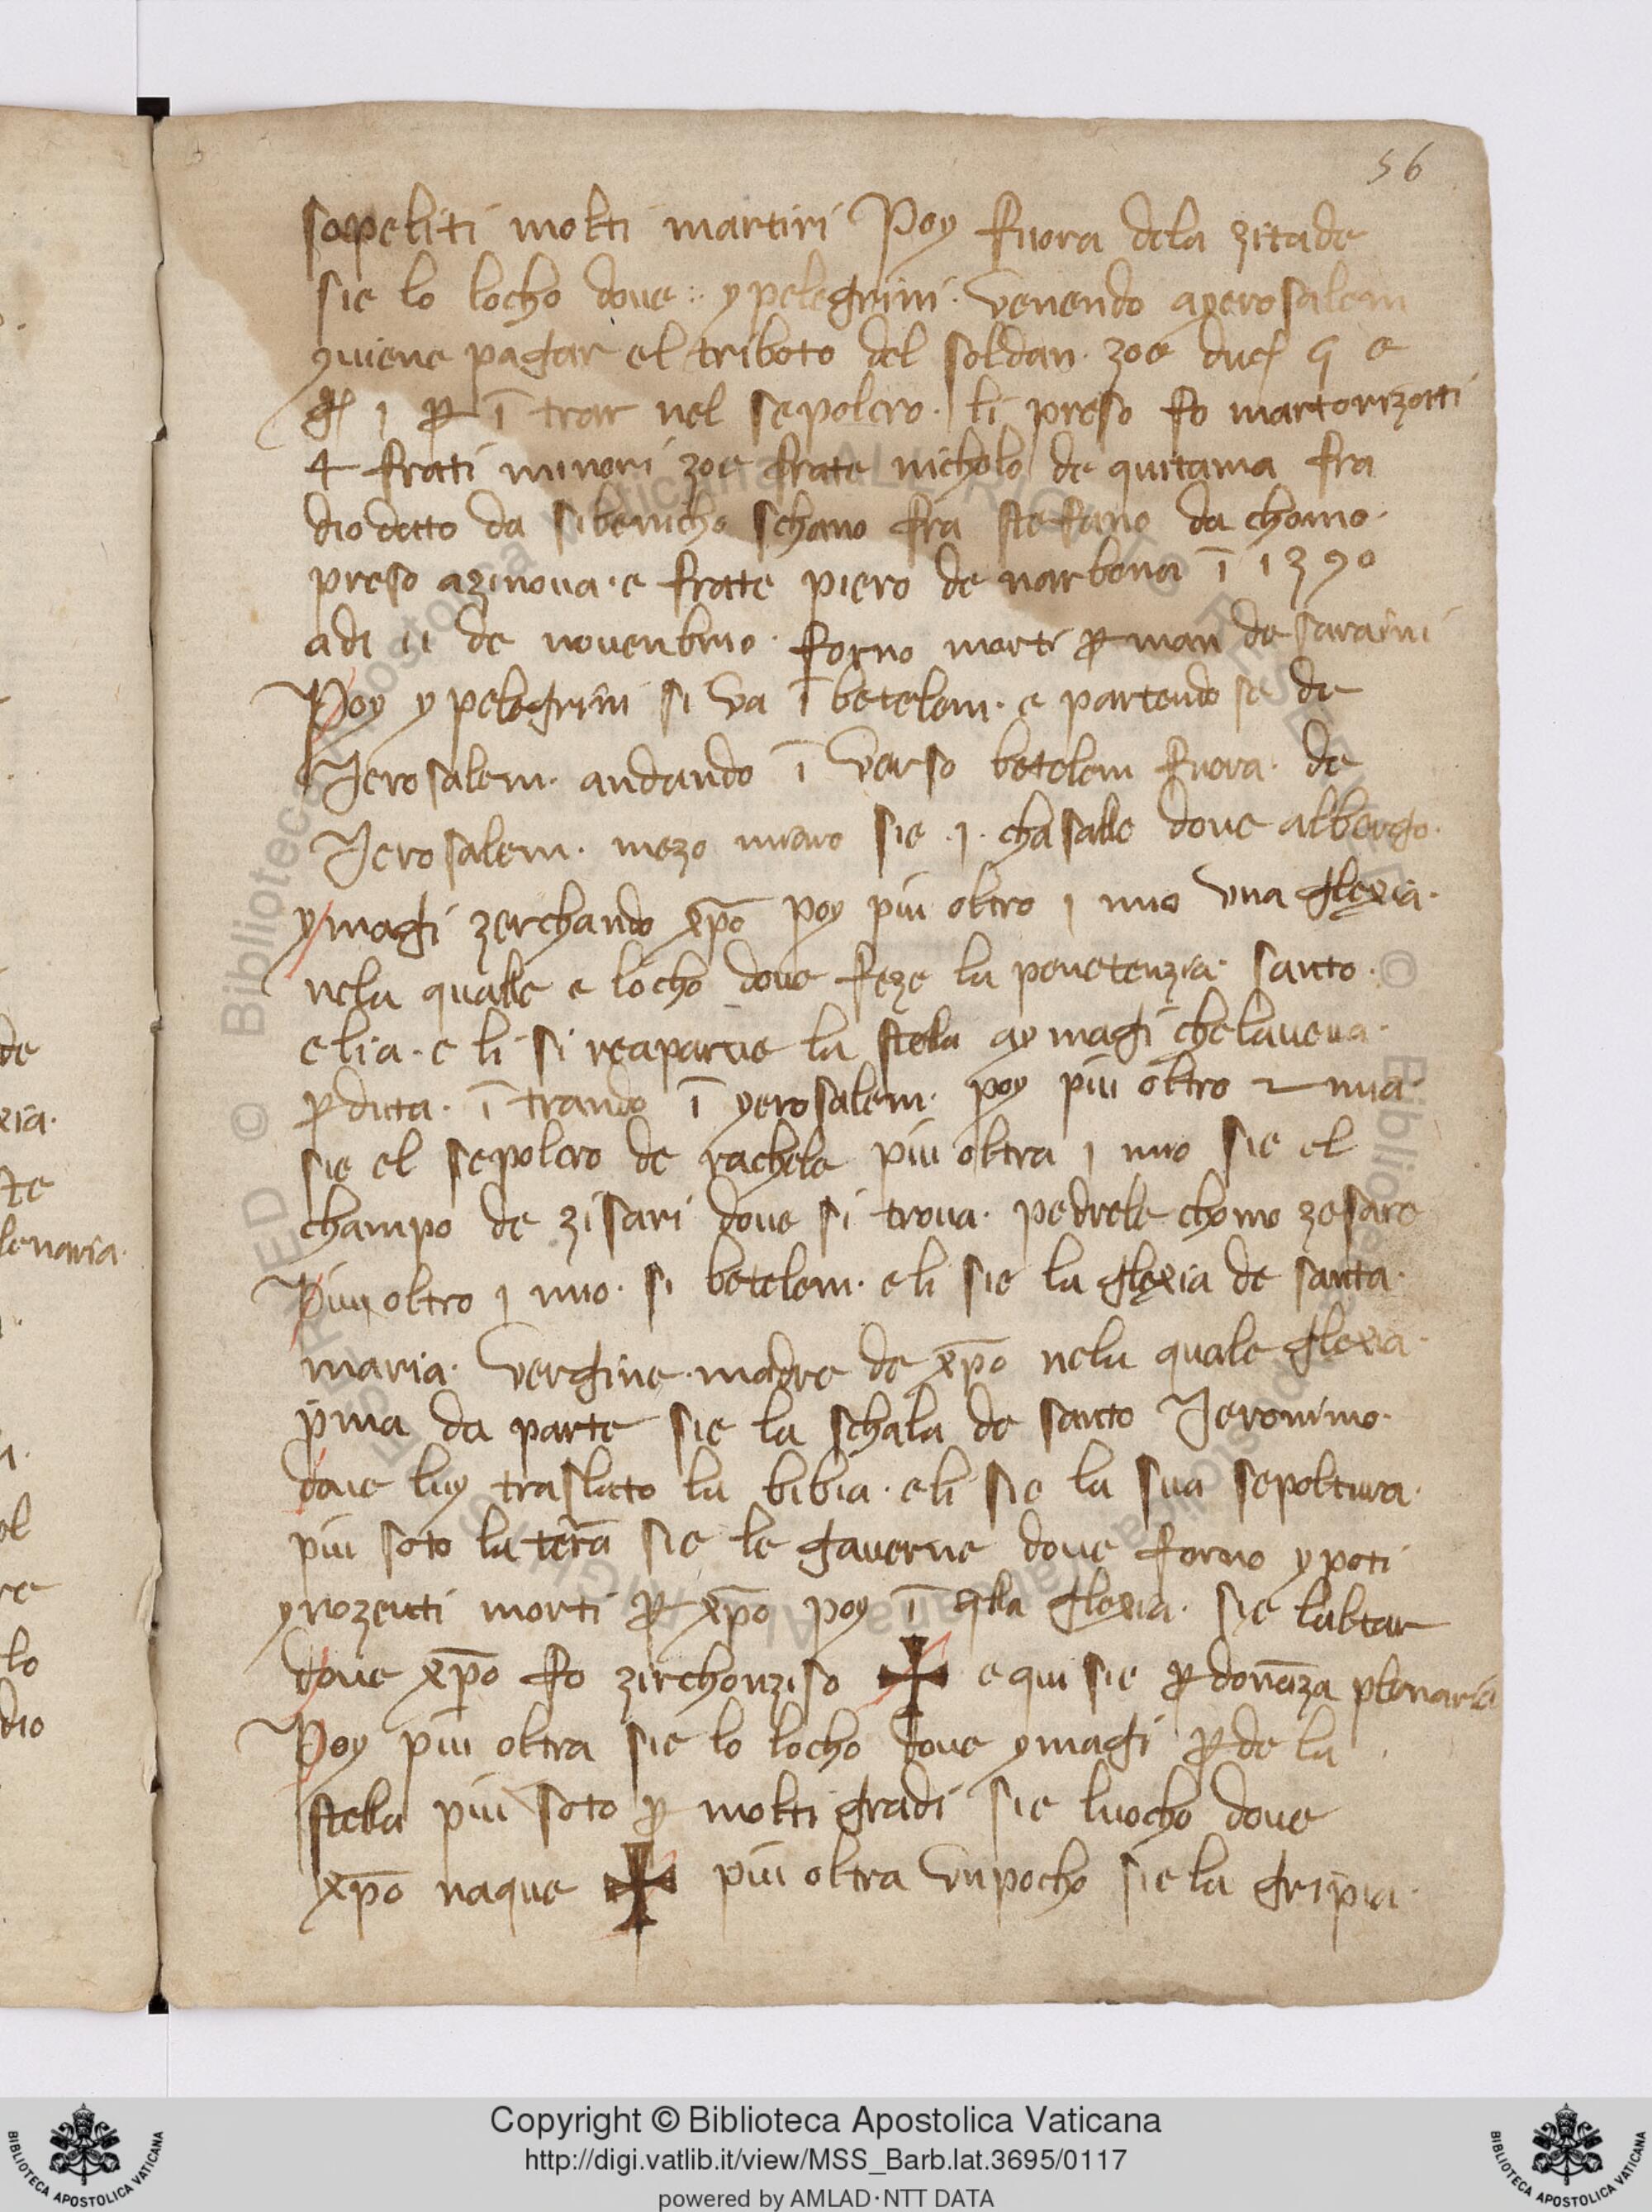 56
sopeliti molti martiri Poy fuora dela zitade
sie lo locho doue :· y pelegrini · venendo a yerosalem
9uiene pagar el triboto del soldan · zoe duc 5 e
g 1 ꝑ ī trar nel sepolcro · li preso fo martorizatti
4 frati minori zoe frate nicholo de quitama fra
dio datto da sibenicho schauo fra stefano da chomo ·
preso a zinoua · e frate piero de narbona ī 1390
adi 11 de nouenbrio · forno morti ꝑ man de saraini
Poy y pelegrini si va ī betelem · e partendo se de
Jerosalem · andando ī verso betelem fuora · de
Jerosalem · mezo miaro sie · 1 · chasalle doue albergo ·
y magi zerchando xp̄o poy piu oltro 1 mio vna glexia ·
nela qualle e locho doue feze la penetenzia · santo ·
elia · e li si reaparue la stela ay magi che laueua ·
ꝑduta · ī trando ī yerosalem · poy piu oltro 2 mia ·
sie el sepolcro de rachele piu oltra 1 mio sie el
champo de zisari doue si troua · pedrele chomo zesare
Piu oltro 1 mio · si betelem · e li sie la glexia de santa ·
maria · vergine · madre de xp̄o nela quale glexia ·
p̄ma da parte sie la schala de santo Jeronimo ·
doue luy traslato la bibia · e li sie la sua sepoltura ·
piu soto la terā sie le gauerne doue forno y poti
ynozenti morti ꝑ xp̄o poy ī q̄lla glexia · sie laltar
doue xp̄o fo zirchonziso ✠ e qui sie ꝑdonāza plenaria
Poy piu oltra sie lo locho doue y magi ꝑde la
stella piu soto ꝑ molti gradi sie luocho doue
xp̄o naque ✠ piu oltra vn pocho sie la gripia ·
de
xia ·
te
lenaria ·
ol
re
lo
dio
© Biblioteca Apostolica Vaticana ALL RIGHTS RESERVED
Copyright © Biblioteca Apostolica Vaticana
http://digi.vatlib.it/view/MSS_Barb.lat.3695/0117
powered by AMLAD·NTT DATA
BIBLIOTECA APOSTOLICA VATICANA
BIBLIOTECA APOSTOLICA VATICANA